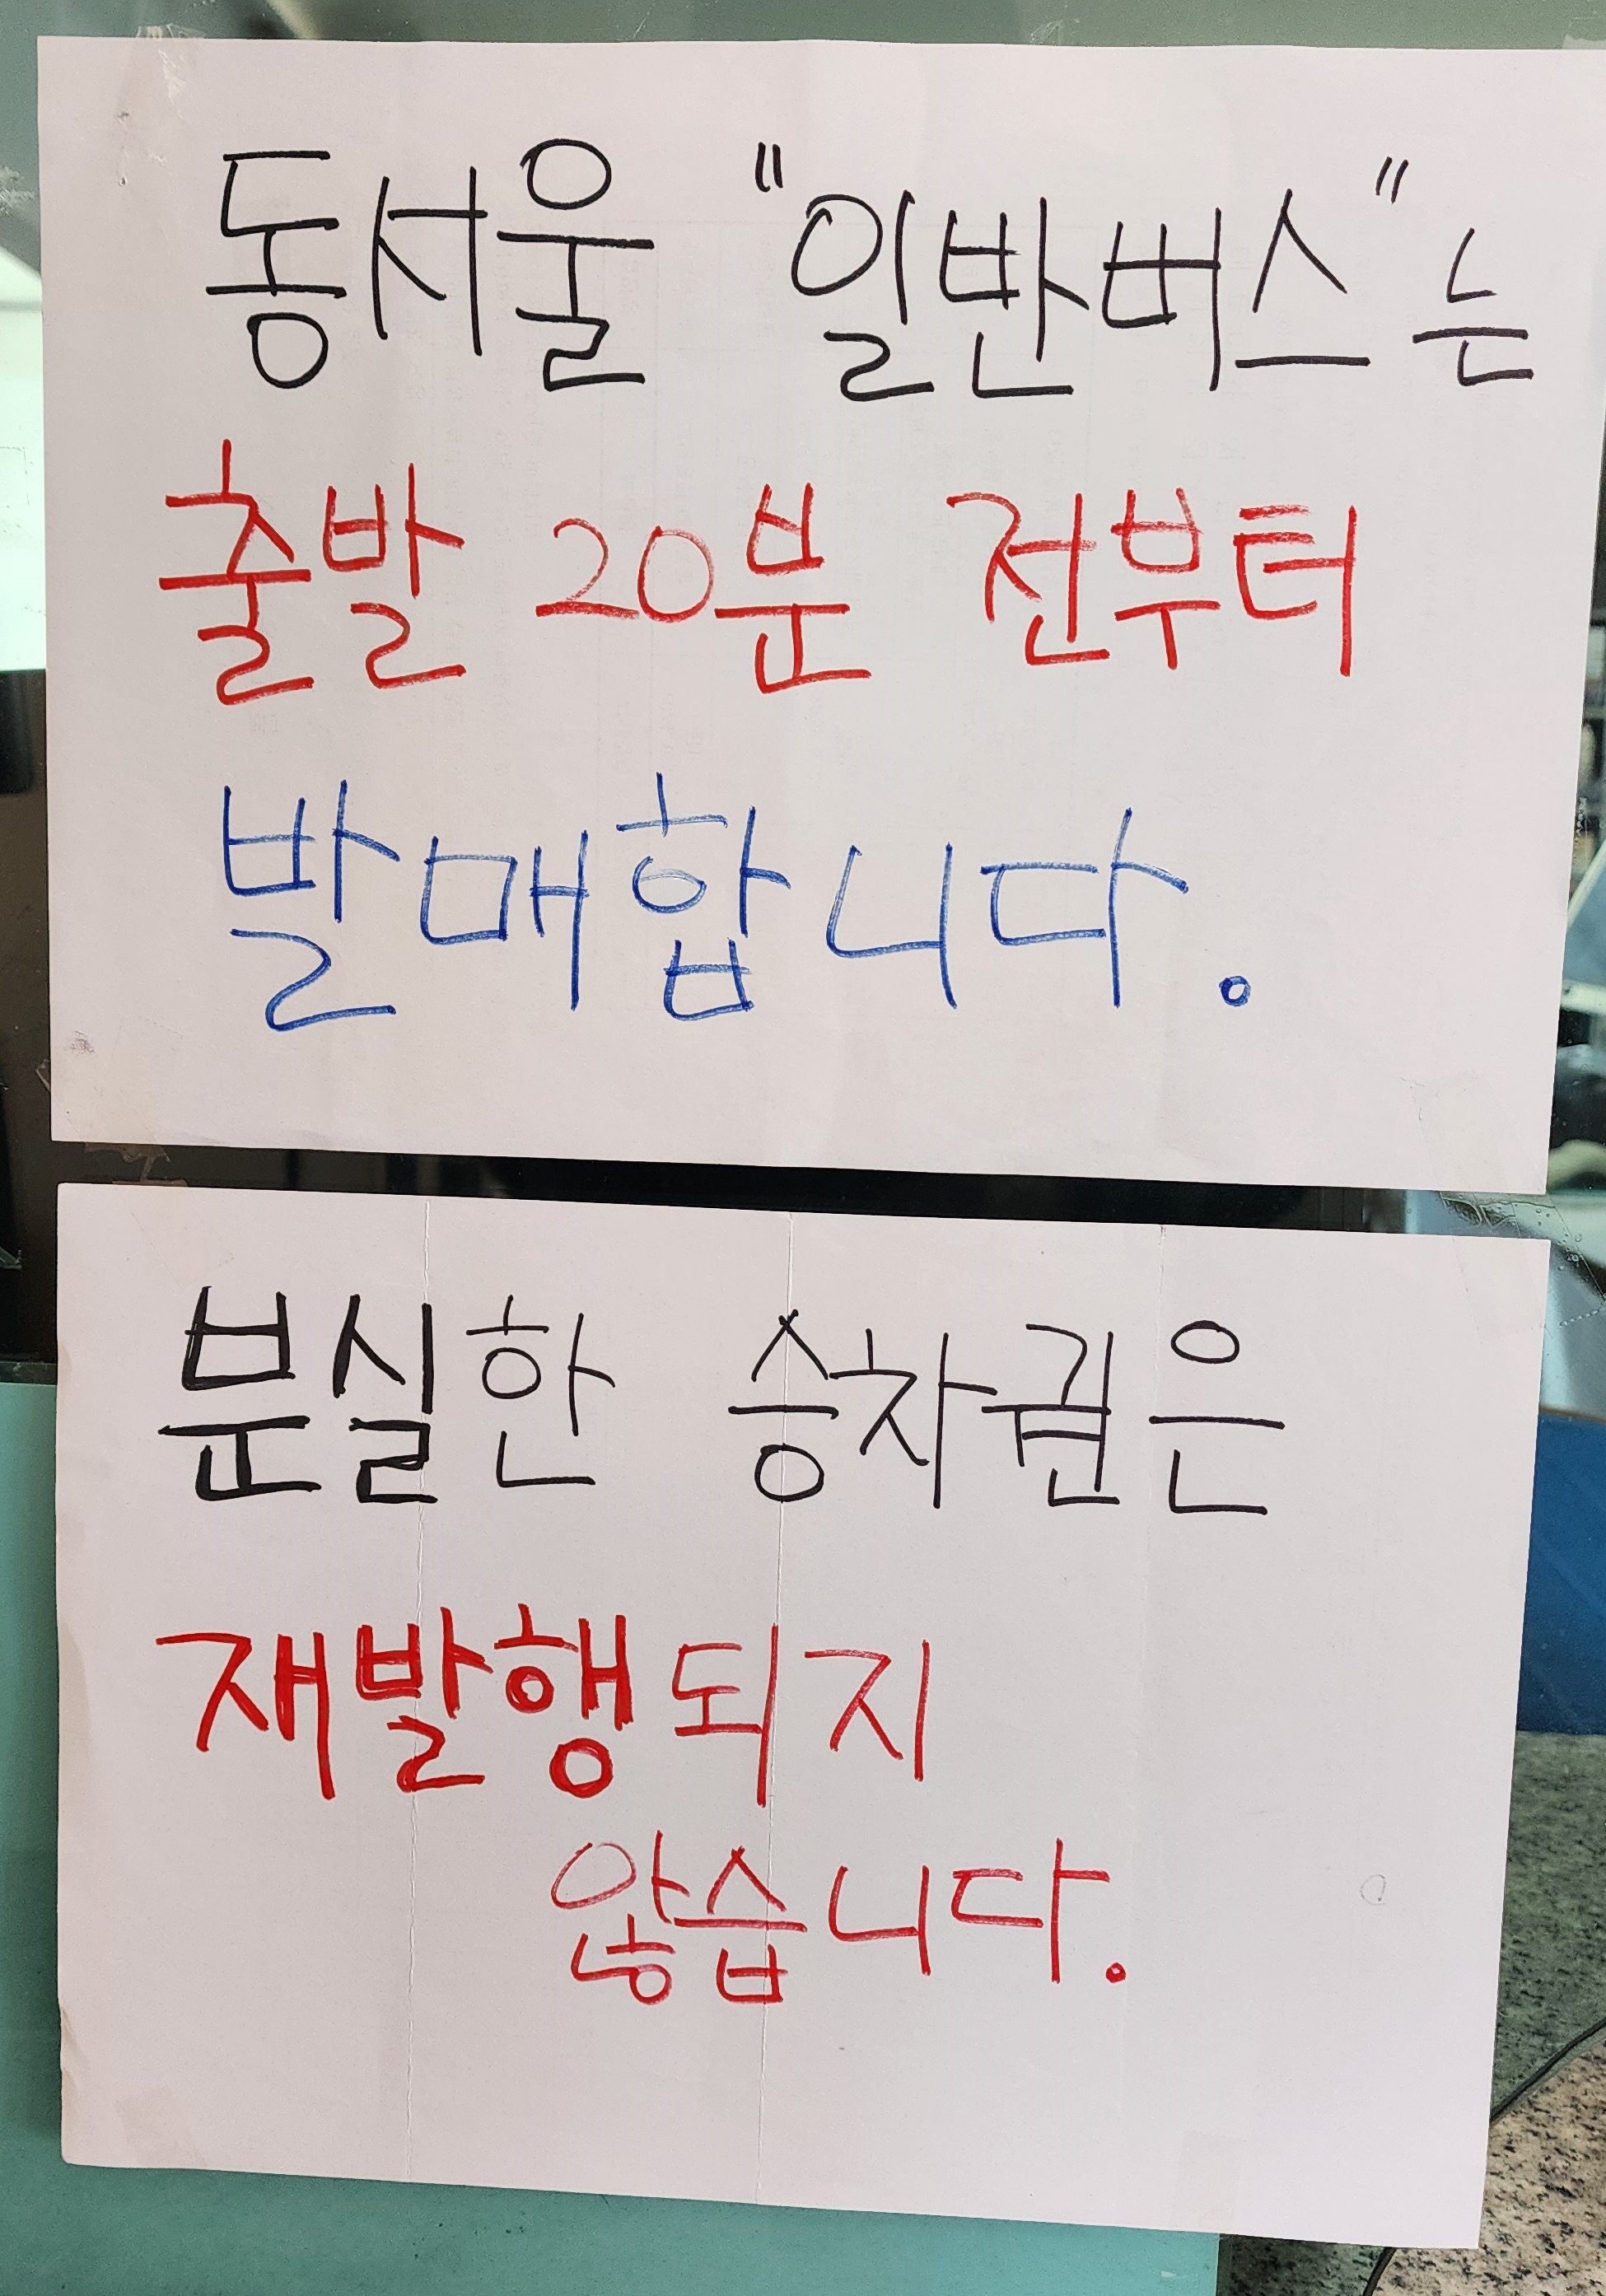 동서울 "일반버스"는
출발 20분 전부터
발매합니다.
분실한 승차권은
재발행되지
않습니다.